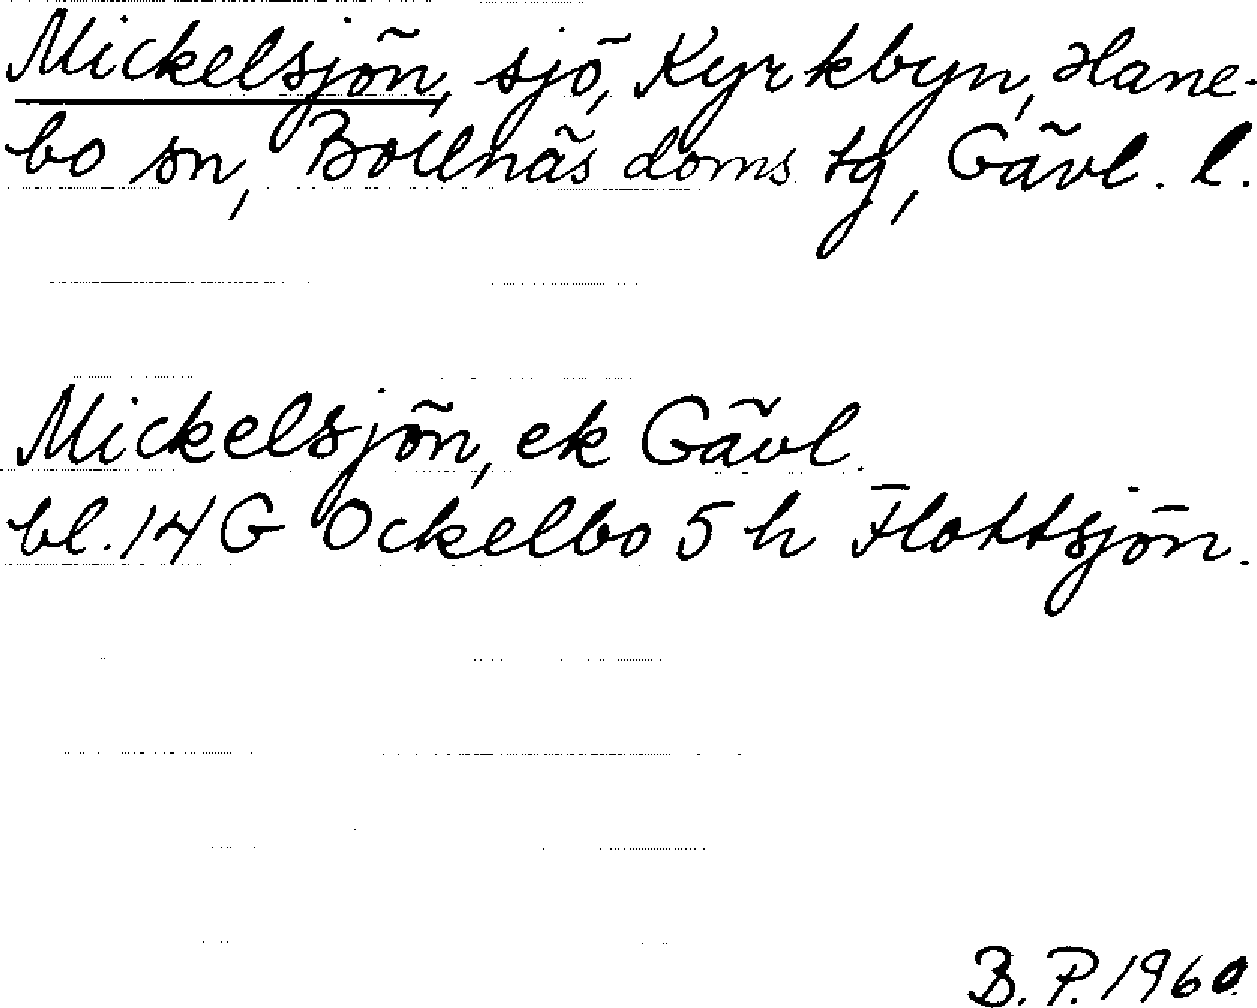 Mickelsjön, sjö, Kyrkbyn, Hane-
bo sn, Bollnäs doms tg, Gävl. l.
Mickelsjön, ek Gävl.
bl. 14 G Ockelbo 5 h Flottsjön.
B. P. 1960